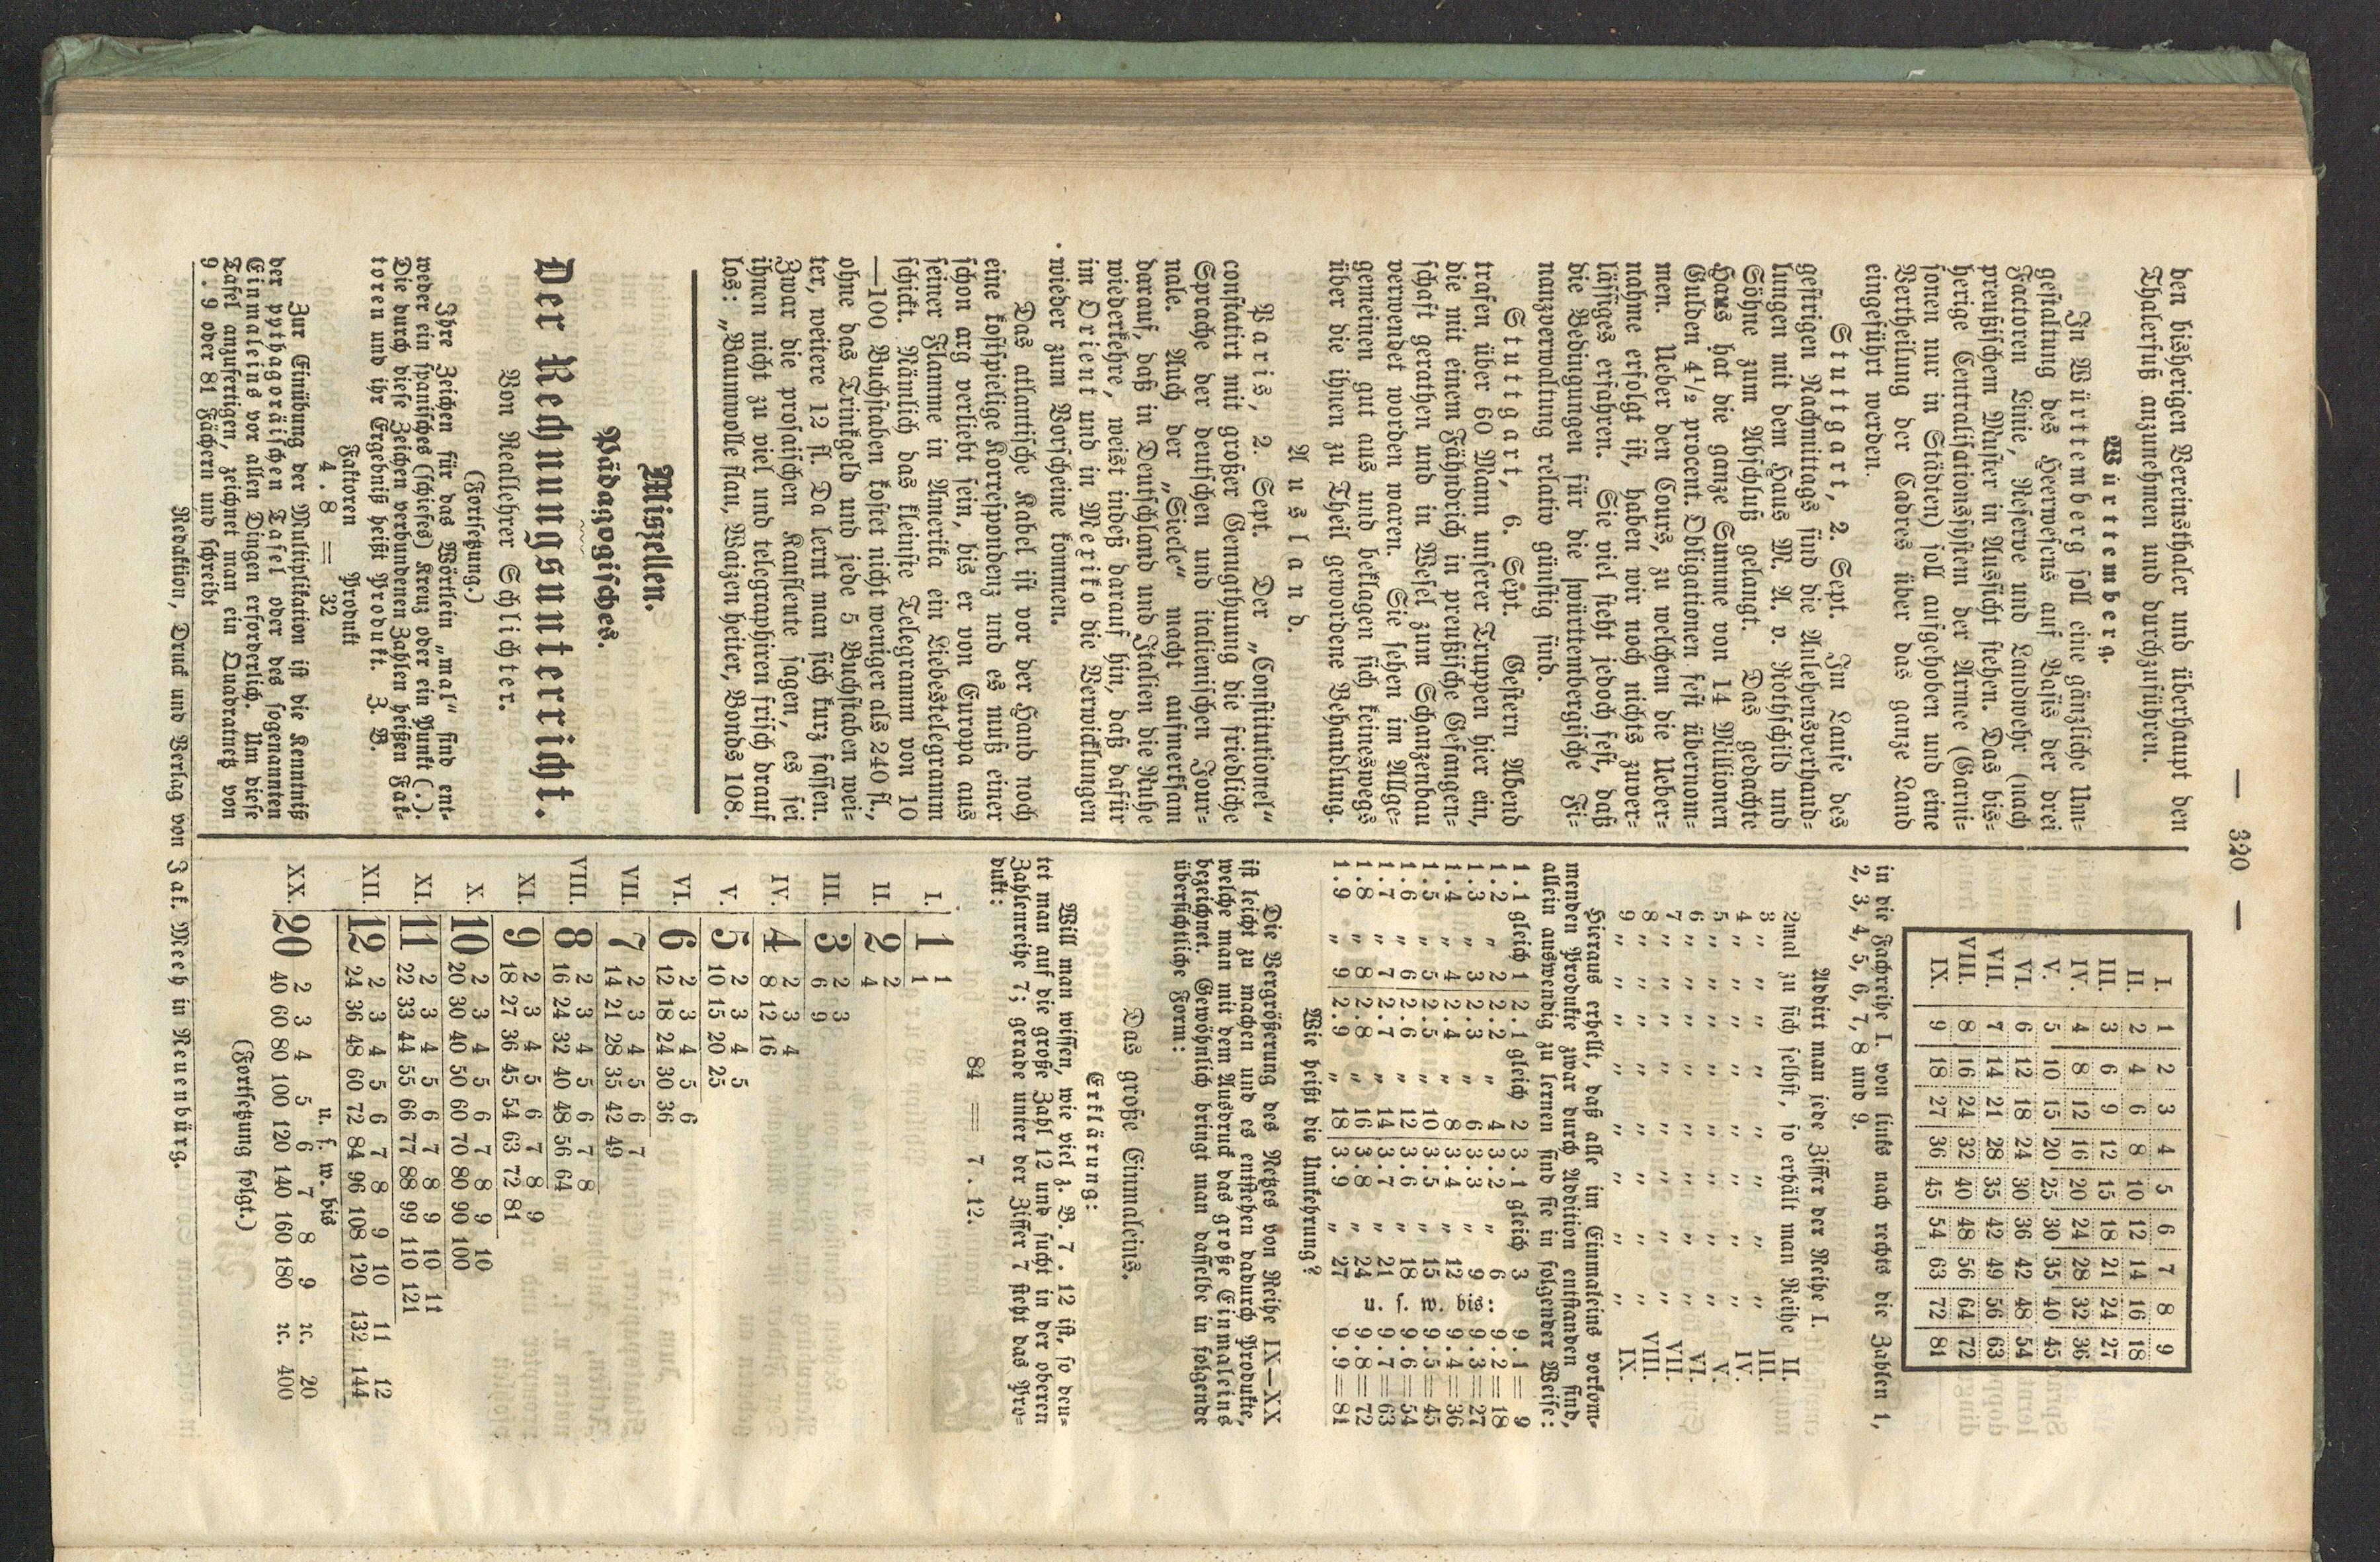 — 320 —
den bisherigen Vereinsthaler und überhaupt den
Thalerfuß anzunehmen und durchzuführen.
Württemberg.
In Württemberg soll eine gänzliche Um-
gestaltung des Heerwesens auf Basis der drei
Factoren Linie, Reserve und Landwehr (nach
preußischem Muster in Aussicht stehen. Das bis-
herige Centralisationssystem der Armee (Garni-
sonen nur in Städten) soll aufgehoben und eine
Vertheilung der Cadres über das ganze Land
eingeführt werden.
Stuttgart, 2. Sept. Im Laufe des
gestrigen Nachmittags sind die Anlehensverhand-
lungen mit dem Haus M. A. v. Rothschild und
Söhne zum Abschluß gelangt. Das gedachte
Haus hat die ganze Summe von 14 Millionen
Gulden 4½ procent. Obligationen fest übernom-
men. Ueber den Cours, zu welchem die Ueber-
nahme erfolgt ist, haben wir noch nichts zuver-
lässiges erfahren. Sie viel steht jedoch fest, daß
die Bedingungen für die württembergische Fi-
nanzverwaltung relativ günstig sind.
Stuttgart, 6. Sept. Gestern Abend
trafen über 60 Mann unserer Truppen hier ein,
die mit einem Fähndrich in preußische Gefangen-
schaft gerathen und in Wesel zum Schanzenbau
verwendet worden waren. Sie sehen im Allge-
gemeinen gut aus und beklagen sich keineswegs
über die ihnen zu Theil gewordene Behandlung.
Ausland.
Paris, 2. Sept. Der „Constitutionel“
constatirt mit großer Genugthuung die friedliche
Sprache der deutschen und italienischen Jour-
nale. Auch der „Siecle“ macht aufmerksam
darauf, daß in Deutschland und Italien die Ruhe
wiederkehre, weist indeß darauf hin, daß dafür
im Orient und in Mexiko die Verwicklungen
wieder zum Vorscheine kommen.
Das atlantische Kabel ist vor der Hand noch
eine kostspielige Korrespondenz und es muß einer
schon arg verliebt sein, bis er von Europa aus
seiner Flamme in Amerika ein Liebestelegramm
schickt. Nämlich das kleinste Telegramm von 10
—100 Buchstaben kostet nicht weniger als 240 fl.,
ohne das Trinkgeld und jede 5 Buchstaben wei-
ter, weitere 12 fl. Da lernt man sich kurz fassen.
Zwar die prosaischen Kaufleute sagen, es sei
ihnen nicht zu viel und telegraphiren frisch drauf
los: „Baumwolle flau, Waizen heiter, Bonds 108.
Miszellen.
Pädagogisches.
Der Rechnungsunterricht.
Von Reallehrer Schlichter.
(Fortsetzung.)
Ihre Zeichen für das Wörtlein „mal“ sind ent-
weder ein spanisches (schiefes) Kreuz oder ein Punkt (.).
Die durch diese Zeichen verbundenen Zahlen heißen Fak-
toren und ihr Ergebniß heißt Produkt. Z. B.
Faktoren Produkt
4 . 8 = 32
Zur Einübung der Multiplikation ist die Kenntniß
der pythagoräischen Tafel oder des sogenannten
Einmaleins vor allen Dingen erforderlich. Um diese
Tafel anzufertigen, zeichnet man ein Quadratnetz von
9 . 9 oder 81 Fächern und schreibt
I. 1 2 3 4 5 6 7 8 9
II. 2 4 6 8 10 12 14 16 18
III. 3 6 9 12 15 18 21 24 27
IV. 4 8 12 16 20 24 28 32 36
V. 5 10 15 20 25 30 35 40 45
VI. 6 12 18 24 30 36 42 48 54
VII. 7 14 21 28 35 42 49 56 63
VIII. 8 16 24 32 40 48 56 64 72
IX. 9 18 27 36 45 54 63 72 81
in die Fachreihe I. von links nach rechts die Zahlen 1,
2, 3, 4, 5, 6, 7, 8 und 9.
Addirt man jede Ziffer der Reihe I.
2mal zu sich selbst, so erhält man Reihe II.
3 „ „ „ „ „ „ „ „ III.
4 „ „ „ „ „ „ „ „ IV.
5 „ „ „ „ „ „ „ „ V.
6 „ „ „ „ „ „ „ „ VI.
7 „ „ „ „ „ „ „ „ VII.
8 „ „ „ „ „ „ „ „ VIII.
9 „ „ „ „ „ „ „ „ IX.
Hieraus erhellt, daß alle im Einmaleins vorkom-
menden Produkte zwar durch Addition entstanden sind,
allein auswendig zu lernen sind sie in folgender Weise:
1.1 gleich 1 2.1 gleich 2 3.1 gleich 3 9.1= 9
1.2 „ 2 2.2 „ 4 3.2 „ 6 9.2=18
1.3 „ 3 2.3 „ 6 3.3 „ 9 9.3=27
1.4 „ 4 2.4 „ 8 3.4 „ 12 9.4=36
1.5 „ 5 2.5 „ 10 3.5 „ 15 u. s. w. bis: 9.5=45
1.6 „ 6 2.6 „ 12 3.6 „ 18 9.6=54
1.7 „ 7 2.7 „ 14 3.7 „ 21 9.7=63
1.8 „ 8 2.8 „ 16 3.8 „ 24 9.8=72
1.9 „ 9 2.9 „ 18 3.9 „ 27 9.9=81
Wie heißt die Umkehrung?
Die Vergrößerung des Netzes von Reihe IX—XX
ist leicht zu machen und es entstehen dadurch Produkte,
welche man mit dem Ausdruck das große Einmaleins
bezeichnet. Gewöhnlich bringt man dasselbe in folgende
übersichtliche Form:
Das große Einmaleins.
Erklärung:
Will man wissen, wie viel z. B. 7 . 12 ist, so deu-
tet man auf die große Zahl 12 und sucht in der oberen
Zahlenreihe 7; gerade unter der Ziffer 7 steht das Pro-
dukt:
84 = 7 . 12.
1
I. 1 1
2
II. 2 4
2 3
III. 3 6 9
2 3 4
IV. 4 8 12 16
2 3 4 5
V. 5 10 15 20 25
2 3 4 5 6
VI. 6 12 18 24 30 36
2 3 4 5 6 7
VII. 7 14 21 28 35 42 49
2 3 4 5 6 7 8
VIII. 8 16 24 32 40 48 56 64
2 3 4 5 6 7 8 9
XI. 9 18 27 36 45 54 63 72 81
2 3 4 5 6 7 8 9 10
X. 10 20 30 40 50 60 70 80 90 100
2 3 4 5 6 7 8 9 10 11
XI. 11 22 33 44 55 66 77 88 99 110 121
2 3 4 5 6 7 8 9 10 11 12
XII. 12 24 36 48 60 72 84 96 108 120 132 144
u. s. w. bis
2 3 4 5 6 7 8 9 ꝛc. 20
XX. 20 40 60 80 100 120 140 160 180 ꝛc. 400
(Fortsetzung folgt.)
Redaktion, Druck und Verlag von Jak. Meeh in Neuenbürg.